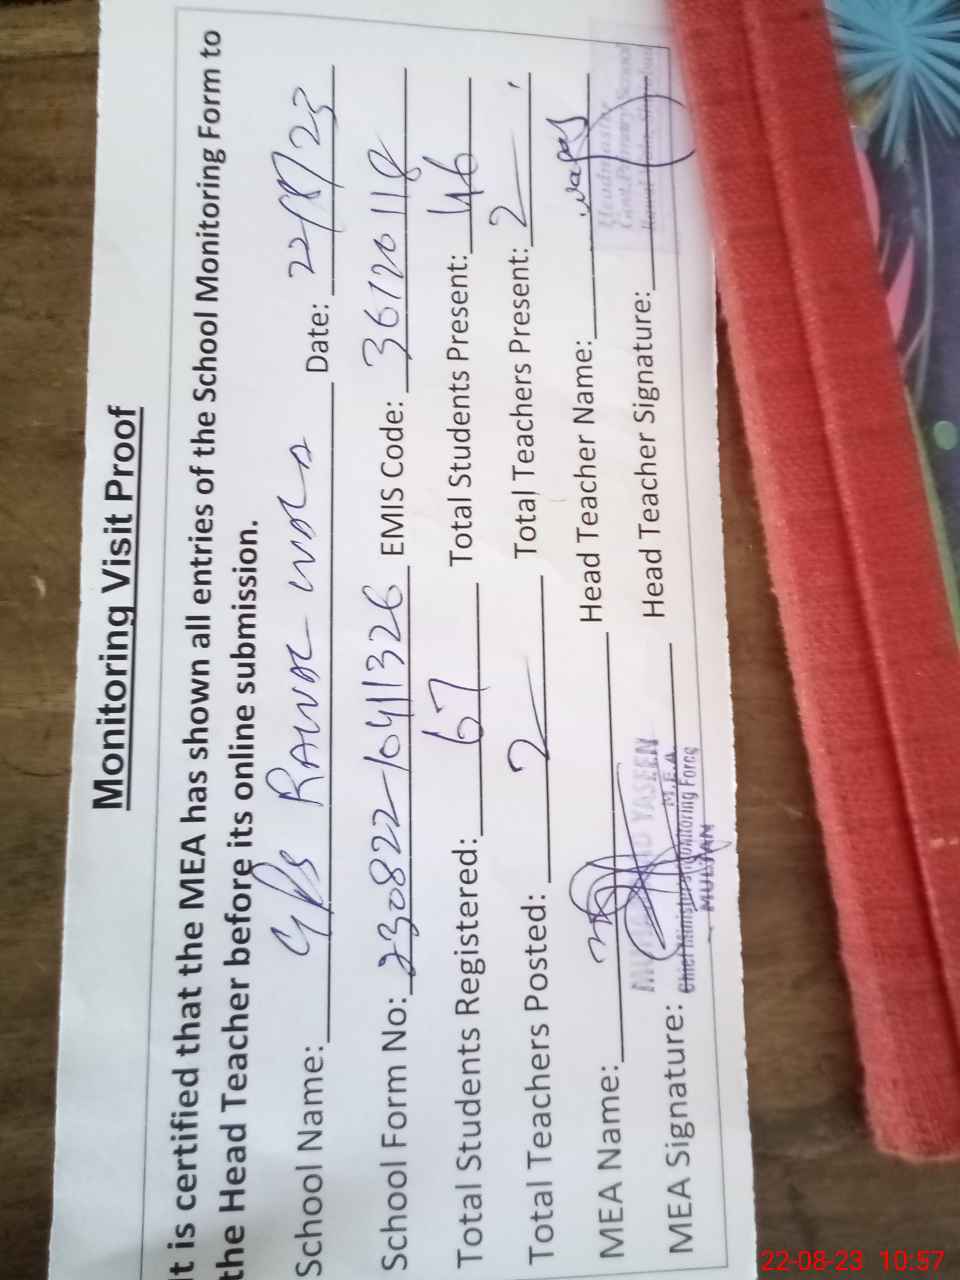 Monitoring Visit Proof
It is certified that the MEA has shown all entries of the School Monitoring Form to
the Head Teacher before its online submission.
School Name: GPS Date: 22/8/23
School Form No: 230822-1041326 EMIS Code: 36120118
Total Students Registered: 67 Total Students Present: 46
Total Teachers Posted: 2 Total Teachers Present: 2
MEA Name: Head Teacher Name:
MEA Signature: Head Teacher Signature:
YASEEN
M.E.A
Chief Minister's Monitoring Force
MULTAN
Headmaster
Govt. Primary School
22-08-23 10:57